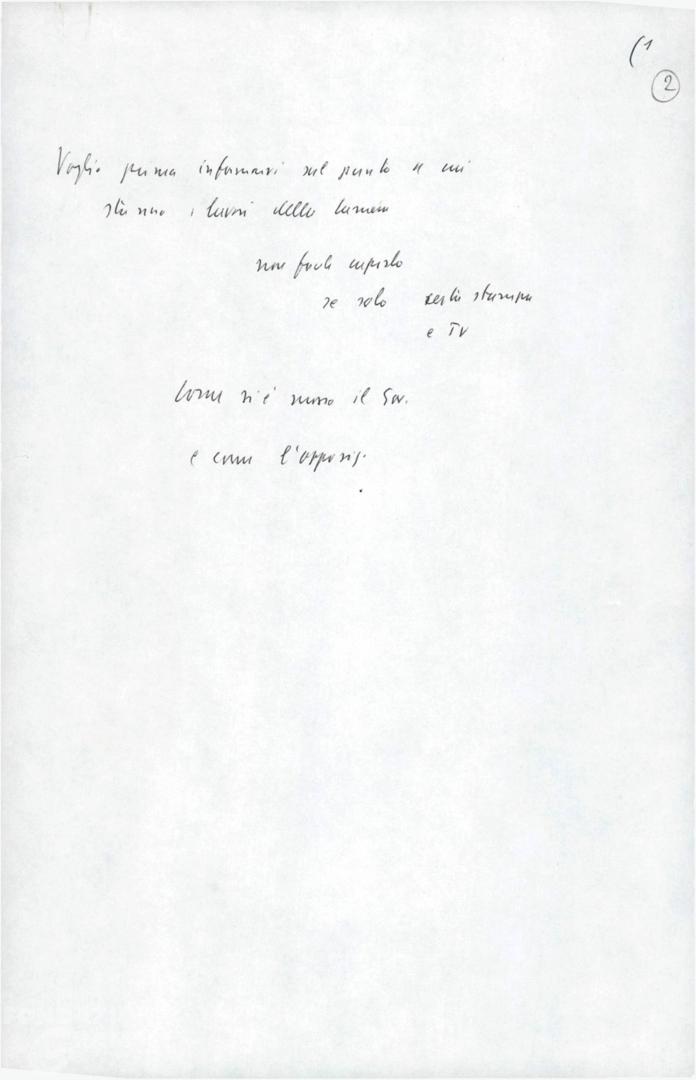 (1
2
Voglio prima informarvi sul punto a cui
stanno i lavori della Camera
non facile capirlo
se solo resta stampa
e TV
Come si è mosso il Gov.
e come l'opposiz.